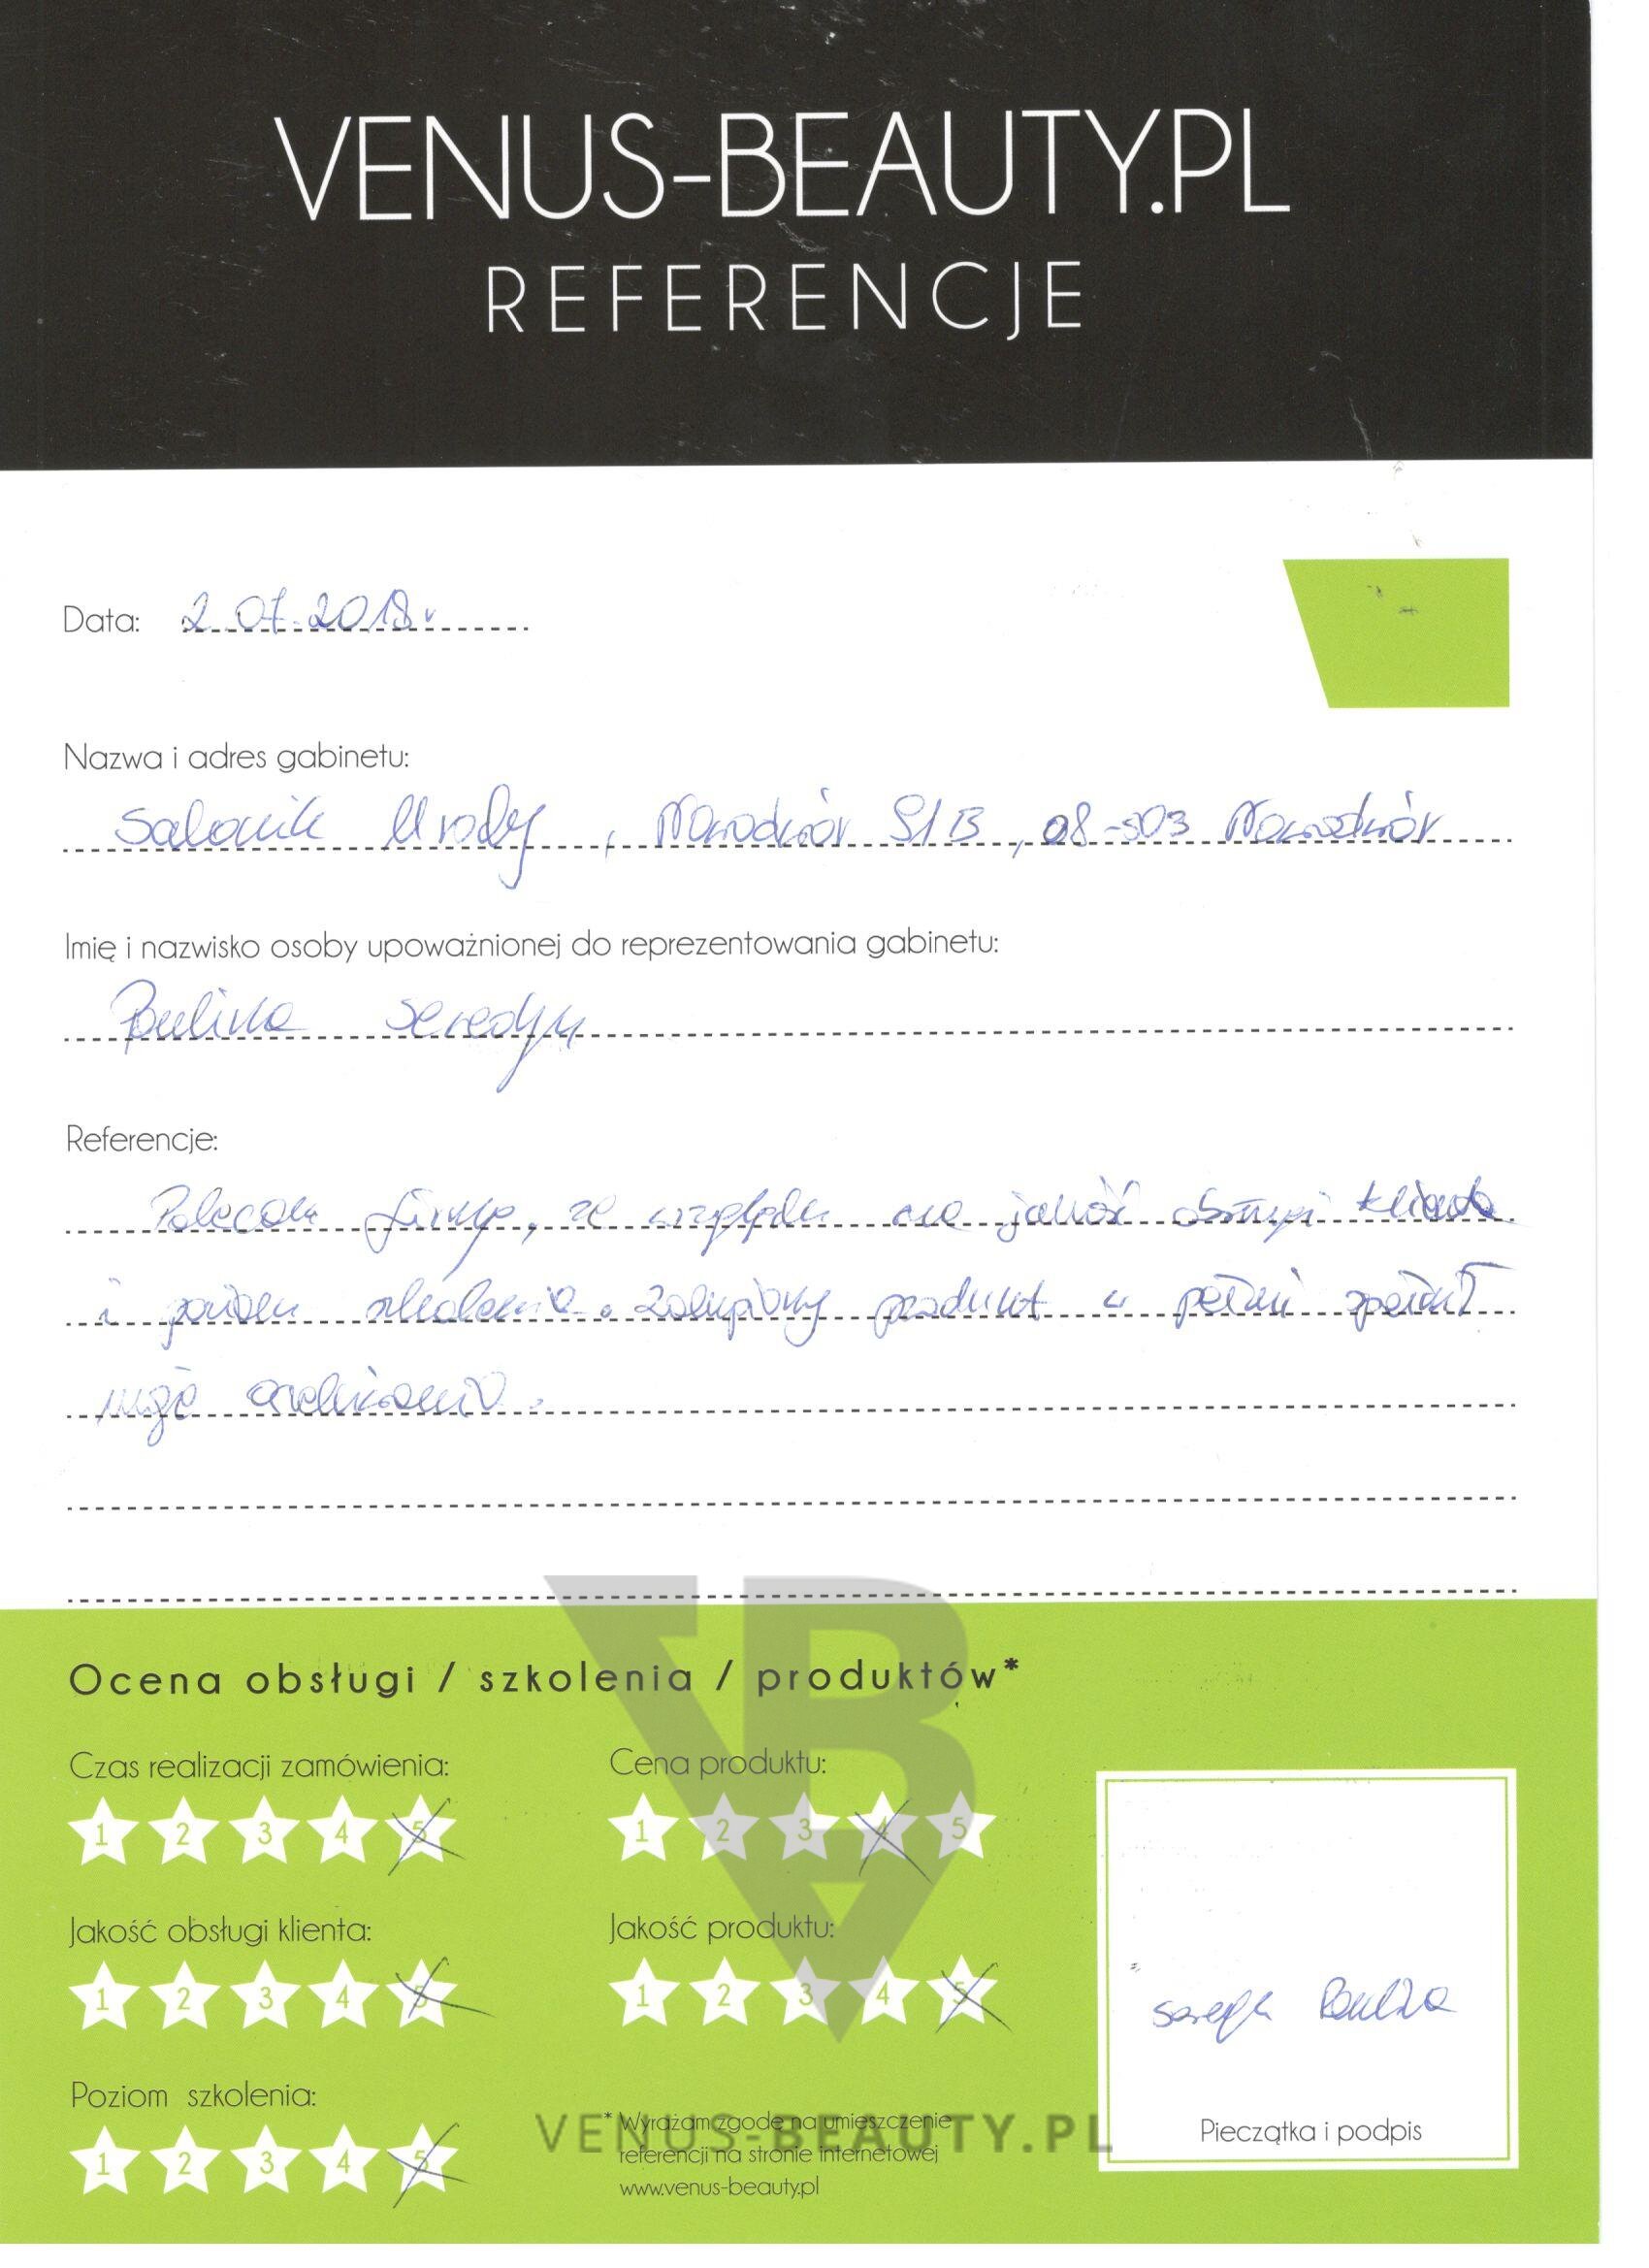 VENUS-BEAUTY.PL
REFERENCJE
Data: 2.07.2018r
Nazwa i adres gabinetu:
Salonik Urody, Nowodwór 51B, 08-503 Nowodwór
Imię i nazwisko osoby upoważnionej do reprezentowania gabinetu:
Paulina Seredyn
Referencje:
Polecam firmę, ze względu na jakość obsługi klienta
i poziom szkolenia. Zakupiony produkt w pełni spełnił
moje oczekiwania.
Ocena obsługi / szkolenia / produktów*
Czas realizacji zamówienia:
1 2 3 4 5
Cena produktu:
1 2 3 4 5
Jakość obsługi klienta:
1 2 3 4 5
Jakość produktu:
1 2 3 4 5
Poziom szkolenia:
1 2 3 4 5
* Wyrażam zgodę na umieszczenie
referencji na stronie internetowej
www.venus-beauty.pl
Paulina
Pieczątka i podpis
VENUS-BEAUTY.PL